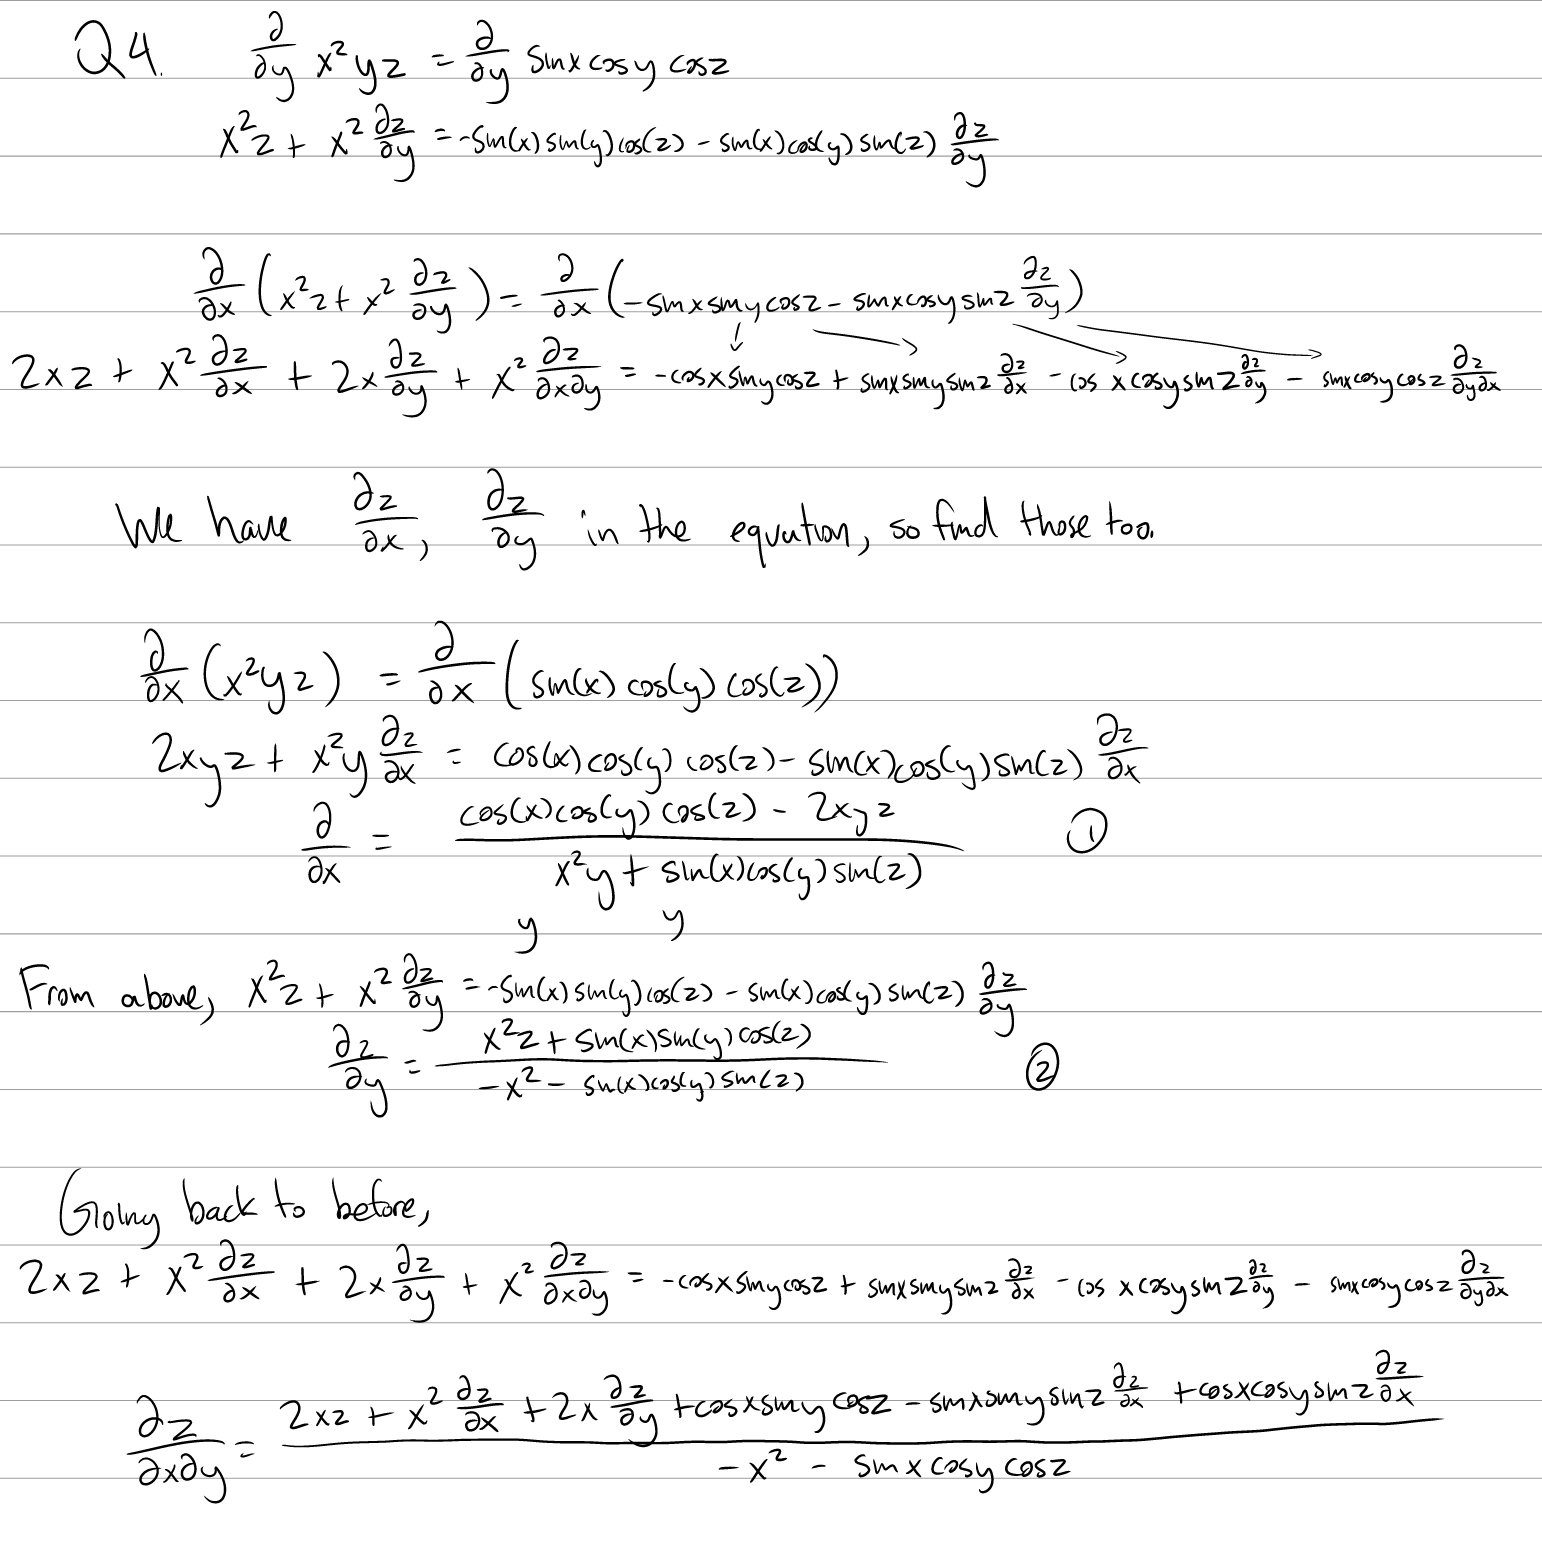 Q4. ∂/∂y x²yz = ∂/∂y sinx cosy cosz
x²z + x² ∂z/∂y = -sin(x) sin(y) cos(z) - sin(x) cos(y) sin(z) ∂z/∂y
∂/∂x (x²z + x² ∂z/∂y) = ∂/∂x (-sinx siny cosz - sinx cosy sinz ∂z/∂y)
2xz + x² ∂z/∂x + 2x ∂z/∂y + x² ∂z/∂x∂y = -cosx siny cosz + sinx siny sinz ∂z/∂x - cos x cosy sinz ∂z/∂y - sinx cosy cosz ∂z/∂y∂x
We have ∂z/∂x, ∂z/∂y in the equation, so find those too.
∂/∂x (x²yz) = ∂/∂x (sin(x) cos(y) cos(z))
2xyz + x²y ∂z/∂x = cos(x) cos(y) cos(z) - sin(x) cos(y) sin(z) ∂z/∂x
∂/∂x = (cos(x) cos(y) cos(z) - 2xyz)/(x²y + sin(x) cos(y) sin(z)) ①
y y
From above, x²z + x² ∂z/∂y = -sin(x) sin(y) cos(z) - sin(x) cos(y) sin(z) ∂z/∂y
∂z/∂y = (x²z + sin(x) sin(y) cos(z))/(-x² - sin(x) cos(y) sin(z)) ②
Going back to before,
2xz + x² ∂z/∂x + 2x ∂z/∂y + x² ∂z/∂x∂y = -cosx siny cosz + sinx siny sinz ∂z/∂x - cos x cosy sinz ∂z/∂y - sinx cosy cosz ∂z/∂y∂x
∂z/∂x∂y = (2xz + x² ∂z/∂x + 2x ∂z/∂y + cosx siny cosz - sinx siny sinz ∂z/∂x + cosx cosy sinz ∂z/∂x)/(-x² - sinx cosy cosz)